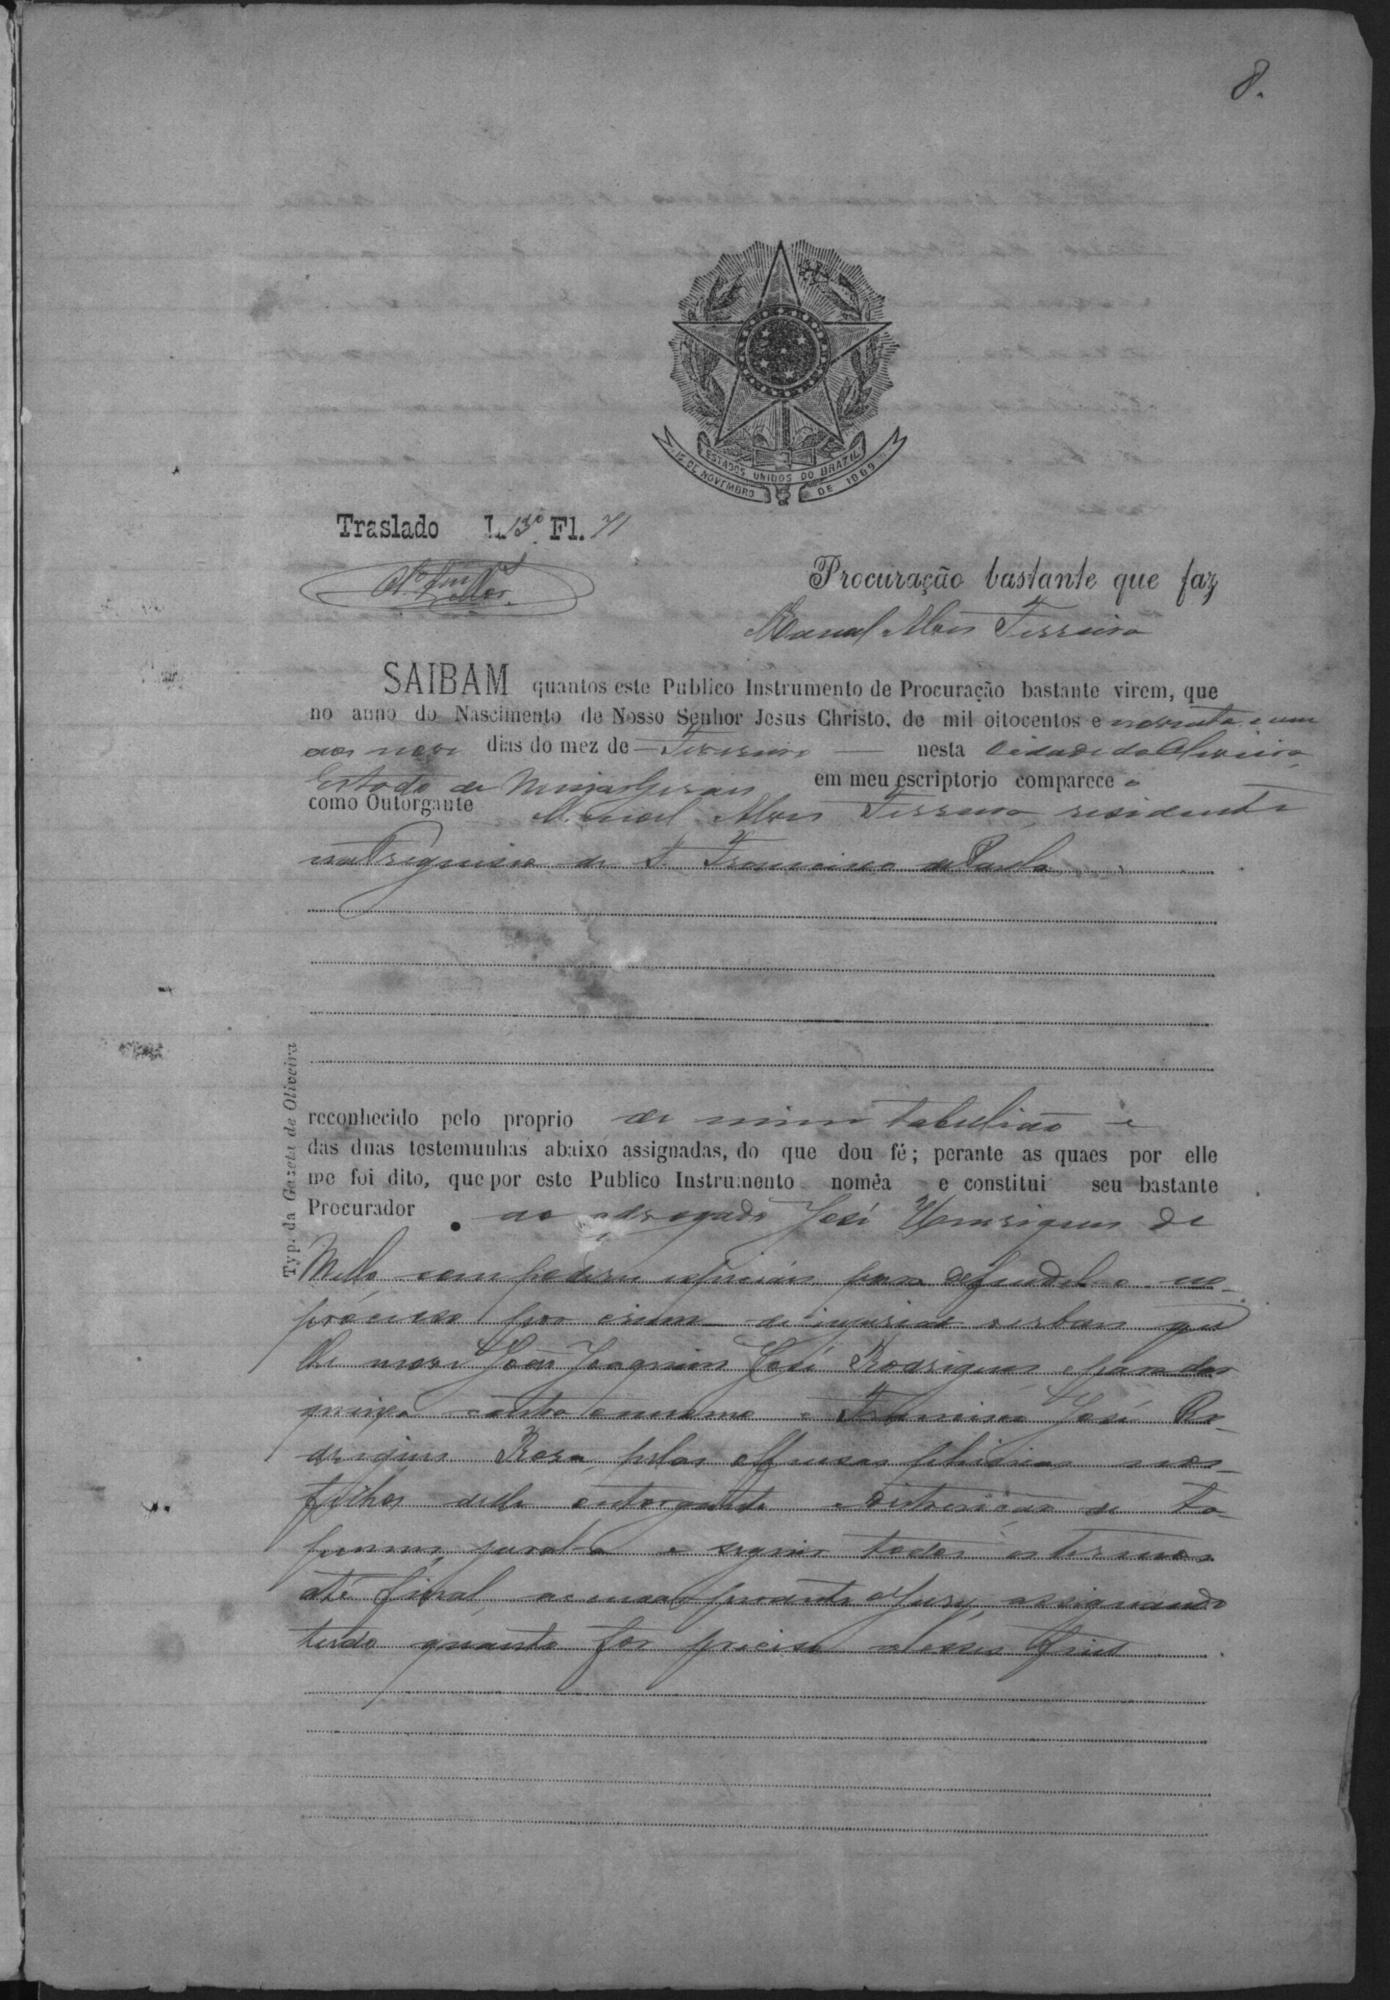 8.
ESTADOS UNIDOS DO BRAZIL
15 DE NOVEMBRO DE 1889
Traslado L. 13º Fl. 71
Procuração bastante que faz
Manoel Alves Ferreira
SAIBAM quantos este Publico Instrumento de Procuração bastante virem, que
no anno do Nascimento de Nosso Senhor Jesus Christo, de mil oitocentos e noventa e um
aos nove dias do mez de Fevereiro nesta Cidade da Oliveira,
Estado de Minas Geraes em meu escriptorio comparece o
como Outorgante Manoel Alves Ferreira, residente
na Freguesia de S. Francisco de Paula
Typ. da Gazeta de Oliveira
reconhecido pelo proprio de mim tabelião e
das duas testemunhas abaixo assignadas, do que dou fé; perante as quaes por elle
me foi dito, que por este Publico Instrumento nomêa e constitui seu bastante
Procurador ao advogado José Henriques de
Mello com poderes especiaes para defendel-o no
processo por crime de injurias verbaes que
lhe move João Joaquim José Rodrigues e para dar
queixa contra o mesmo e José Ro-
drigues Rosa, pelas offensas phisicas nos
filhos delle outorgante
jural-a e seguir todos os termos
até final, accusar perante o Jury, assignando
tudo quanto for preciso a esses fins